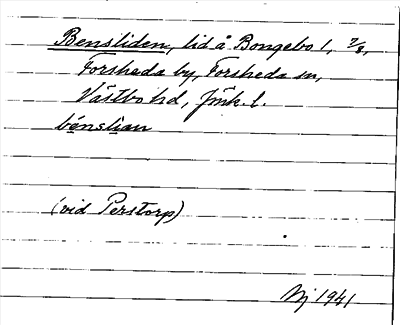 Bensliden, lid å Bongebo 1, 7/8,
Forsheda by, Forsheda sn,
Västbo hd, Jmk. l.
bénslian
(vid Perstorp)
Nj 1941